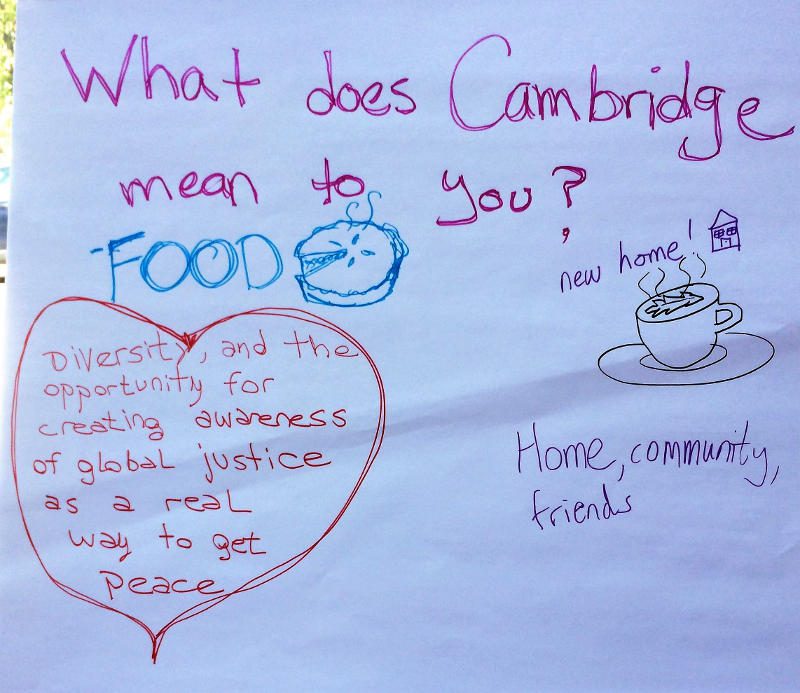 What does Cambridge
mean to you?
FOOD
new home!
Diversity, and the
opportunity for
creating awareness
of global justice
as a real
way to get
Peace
Home, community,
friends